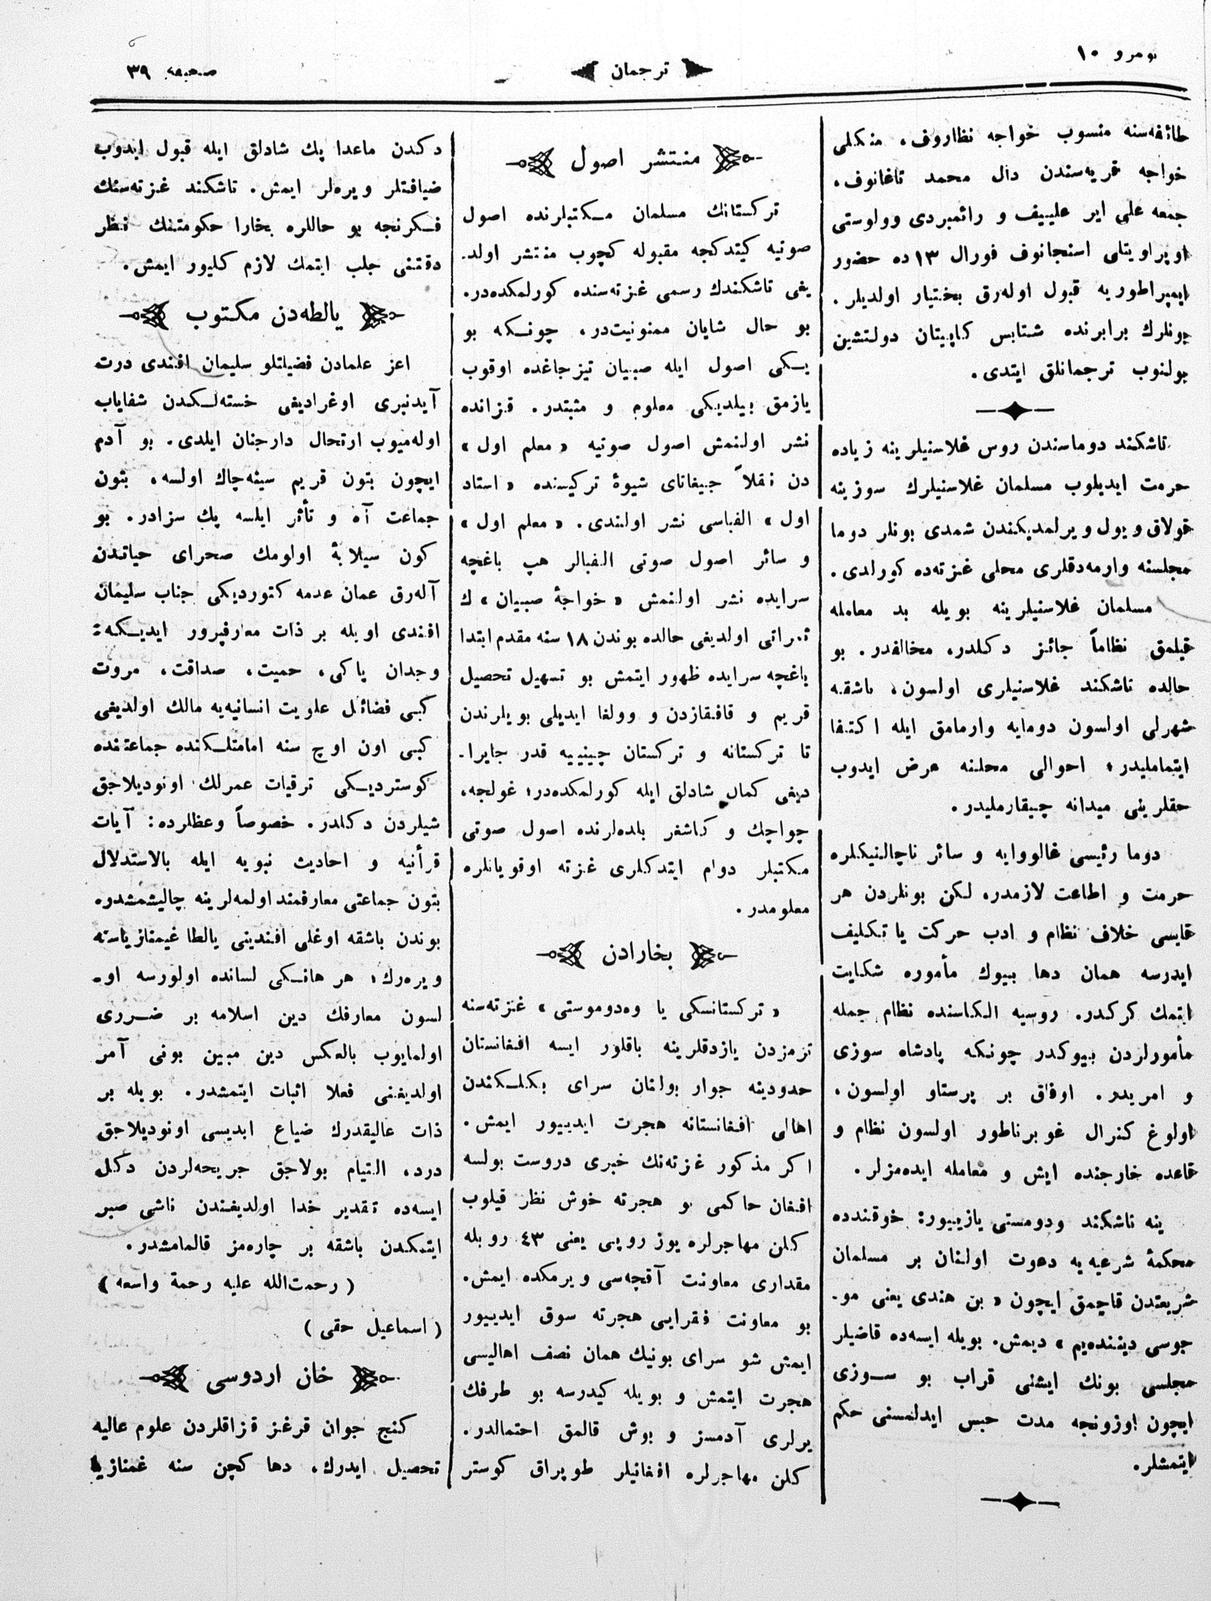 نومرو ١٠
ترجمان
صحیفه ٣٩
طائفه‌سنه منسوب خواجه نظاروف، منكلی
خواجه قریه‌سندن دال محمد تاغانوف،
جمعه علی ایر علییف و رائمبردی وولوستی
اوپراویتلی استجانوف فورال ١٣ده حضور
ایمپراطوریه قبول اوله‌رق بختیار اولدیلر.
بونلرك برابرنده شتابس كاپیتان دولتشین
بولنوب ترجمانلق ایتدی.
تاشكند دوماسندن روس غلاسنیلرینه زیاده
حرمت ایدیلوب مسلمان غلاسنیلرك سوزینه
قولاق ویول ویرلمدیكندن شمدی بونلر دوما
مجلسنه وارمه‌دقلری محلی غزته‌ده كورلدی.
مسلمان غلاسنیلرینه بویله بد معامله
قیلمق نظاماً جائز دكلدر، مخالفدر. بو
حالده تاشكند غلاسنیلری اولسون، باشقه
شهرلی اولسون دومایه وارمامق ایله اكتفا
ایتماملیدر؛ احوالی محلنه عرض ایدوب
حقلرینی میدانه چیقارملیدر.
دوما رئیسی غالووایه و سائر ناچالنیكلره
حرمت و اطاعت لازمدر، لكن بونلردن هر
قایسی خلاف نظام و ادب حركت یا تكلیف
ایدرسه همان دها بییوك مأموره شكایت
ایتمك كركدر. روسیه الكاسنده نظام جمله
مأمورلردن بییوكدر چونكه پادشاه سوزی
و امریدر. اوفاق بر پرستاو اولسون،
اولوغ كنرال غوبرناطور اولسون نظام و
قاعده خارجنده ایش و معامله ایده‌مزلر.
ینه تاشكند ودومستی یازییور: خوقندده
محكمهٔ شرعیه‌یه دعوت اولنان بر مسلمان
شریعتدن قاچمق ایچون « بن هندی یعنی مو-
جوسی دیننده‌یم » دیمش. بویله ایسه‌ده قاضیلر
مجلسی بونك ایشنی قراب بو سـوزی
ایچون اوزونجه مدت حبس ایدلمسنی حكم
ایتمشلر.
منتشر اصول
تركستانك مسلمان مكتبلرنده اصول
صوتیه كیتدكجه مقبوله كچوب منتشر اولد-
یغی تاشكندك رسمی غزته‌سنده كورلمكده‌در.
بو حال شایان ممنونیت‌در، چونـكه بو
یـكی اصول ایله صبیان تیزجاغده اوقوب
یازمق بیلدیكی معلوم و مثبتدر. قزانده
نشر اولنمش اصول صوتیه « معلم اول »
دن نقلاً جیغاتای شیوهٔ تركیسنده « استاد
اول » الفباسی نشر اولندی. « معلم اول »
و سائر اصول صوتی الفبالر هپ باغچه
سرایده نشر اولنمش « خواجهٔ صبیان » ك
ثمراتی اولدیغی حالده بوندن ١٨ سنه مقدم ابتدا
باغچه سرایده ظهور ایتمش بو تسهیل تحصیل
قریم و قافقازدن و وولغا ایدیلی بویلرندن
تا تركستانه و تركستان چینییه قدر جایرا-
دیغی كمال شادلق ایله كورلمكده‌در؛ غولجه،
چواچك و كاشغر بلده‌لرنده اصول صوتی
مكتبلر دوام ایتدكلری غزته اوقویانلره
معلومدر.
بخارادن
« تركستانسكی یا وه‌دوموستی » غزته‌سنه
ترمزدن یازدقلرینه باقلور ایسه افغانستان
حدودینه جوار بولنان سرای بكلـكندن
اهالی افغانستانه هجرت ایدییور ایمش.
اكر مذكور غزته‌نك خبری دروست بولسه
افغان حاكمی بو هجرته خوش نظر قیلوب
كلن مهاجرلره یوز روپی یعنی ٤٣ روبله
مقداری معاونت آقچه‌سی ویرمكده ایمش.
بو معاونت فقرایی هجرته سوق ایدییور
ایمش شو سرای بونیك همان نصف اهالیسی
هجرت ایتمش و بویله كیدرسه بو طرفك
یرلری آدمسز و بوش قالمق احتمالدر.
كلن مهاجرلره افغانیلر طوپراق كوستر
دكدن ماعدا پك شادلق ایله قبول ایدوب
ضیافتلر ویره‌لر ایمش. تاشكند غزته‌سنك
فـكرنجه بو حاللره بخارا حكومتنك نظر
دقتنی جلب ایتمك لازم كلیور ایمش.
یالطه‌دن مكتوب
اعز علمادن فضیلتلو سلیمان افندی درت
آیدنبری اوغرادیغی خسته‌لـكدن شفایاب
اوله‌میوب ارتحال دارجنان ایلدی. بو آدم
ایچون بتون قریم سینه‌چاك اولسه، بتون
جماعت آه و تأثر ایلسه پك سزادر. بو
كون سیلابهٔ اولومك صحرای حیاتدن
آله‌رق عمان عدمه كتوردیكی جناب سلیمان
افندی اویله بر ذات معارفپرور ایدیـكه:
وجدان پاكی، حمیت، صداقت، مروت
كبی فضائل علویت انسانیه‌یه مالك اولدیغی
كبی اون اوچ سنه امامتلـكنده جماعتنده
كوستردیـكی ترقیات عمرلك اونودیلاجق
شیلردن دكلدر. خصوصاً وعظلرده: آیات
قرأنیه و احادیث نبویه ایله بالاستدلال
بتون جماعتی معارفمند اولمه‌لرینه چالیشمشدر.
بوندن باشقه اوغلی افندینی یالطا غیمنازیاسنه
ویره‌رك؛ هر هانـكی لسانده اولورسه او-
لسون معارفك دین اسلامه بر ضـرری
اولمایوب بالعكس دین مبین بونی آمر
اولدیغنی فعلا اثبات ایتمشدر. بویله بر
ذات عالیقدرك ضیاع ابدیسی اونودیلاجق
درد، التیام بولاجق جریحه‌لردن دكل
ایسه‌ده تقدیر خدا اولدیغندن ناشی صبر
ایتمكدن باشقه بر چاره‌مز قالمامشدر.
( رحمت‌الله علیه رحمة واسعه )
( اسماعیل حقی )
خان اردوسی
كنج جوان قرغز قزاقلردن علوم عالیه
تحصیل ایدرك، دها كچن سنه غمنازیا